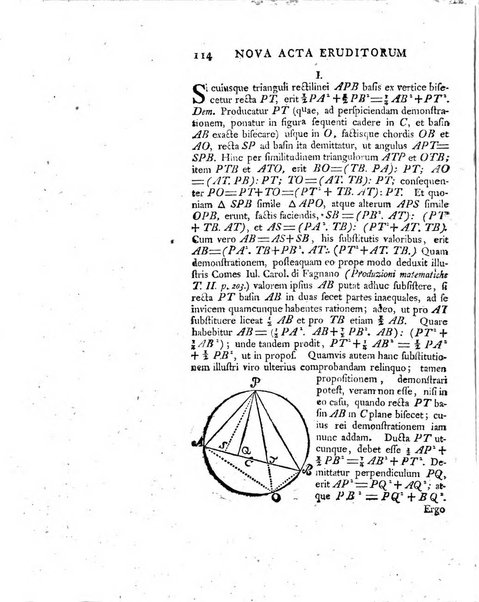 114 NOVA ACTA ERUDITORUM
I.
Si cuiusque trianguli rectilinei APB basis ex vertice bise-
cetur recta PT, erit ½PA²+½PB²=¼AB²+PT².
Dem. Producatur PT (quae, ad perspiciendam demonstra-
tionem, ponatur in figura sequenti cadere in C, et basin
AB exacte bisecare) usque in O, factisque chordis OB et
AO, recta SP ad basin ita demittatur, ut angulus APT=
SPB. Hinc per similitudinem triangulorum ATP et OTB;
item PTB et ATO, erit BO=(TB. PA): PT; AO
=(AT. PB): PT; TO=(AT. TB): PT; consequen-
ter PO=PT+TO=(PT²+AT. TB): PT. Et quo-
niam △ SPB simile △ APO, atque alterum APS simile
OPB, erunt, factis faciendis, SB=(PB². AT): (PT²
+AT. TB), et AS=(PA². TB): (PT²+AT. TB).
Cum vero AB=AS+SB, his substitutis valoribus, erit
AB=(PA². TB+PB². AT): (PT²+AT. TB.) Quam
demonstrationem, posteaquam eo prope modo deduxit illu-
stris Comes Iul. Carol. di Fagnano (Produzioni matematiche
T. II. p. 203.) valorem ipsius AB putat adhuc subsistere, si
recta PT basin AB in duas secet partes inaequales, ad se
invicem quamcunque habentes rationem; adeo, ut pro AT
substituere liceat ½ AB et pro TB etiam ½ AB. Quare
habebitur AB=(½PA². AB+½PB². AB): (PT²+
¼AB²); unde tandem prodit, PT²+¼AB²=½PA²
+½PB², ut in propos. Quamvis autem hanc substitutio-
nem illustri viro ulterius comprobandam relinquo; tamen
propositionem, demonstrari
potest, veram non esse, nisi in
eo casu, quando recta PT ba-
sin AB in C plane bisecet; cu-
ius rei demonstrationem iam
nunc addam. Ducta PT ut-
cunque, debet esse ½AP²+
½PB²=¼AB²+PT². De-
mittatur perpendiculum PQ,
erit AP²=PQ²+AQ²; at-
que PB²=PQ²+BQ².
Ergo
P
A
S
Q
C
T
B
O